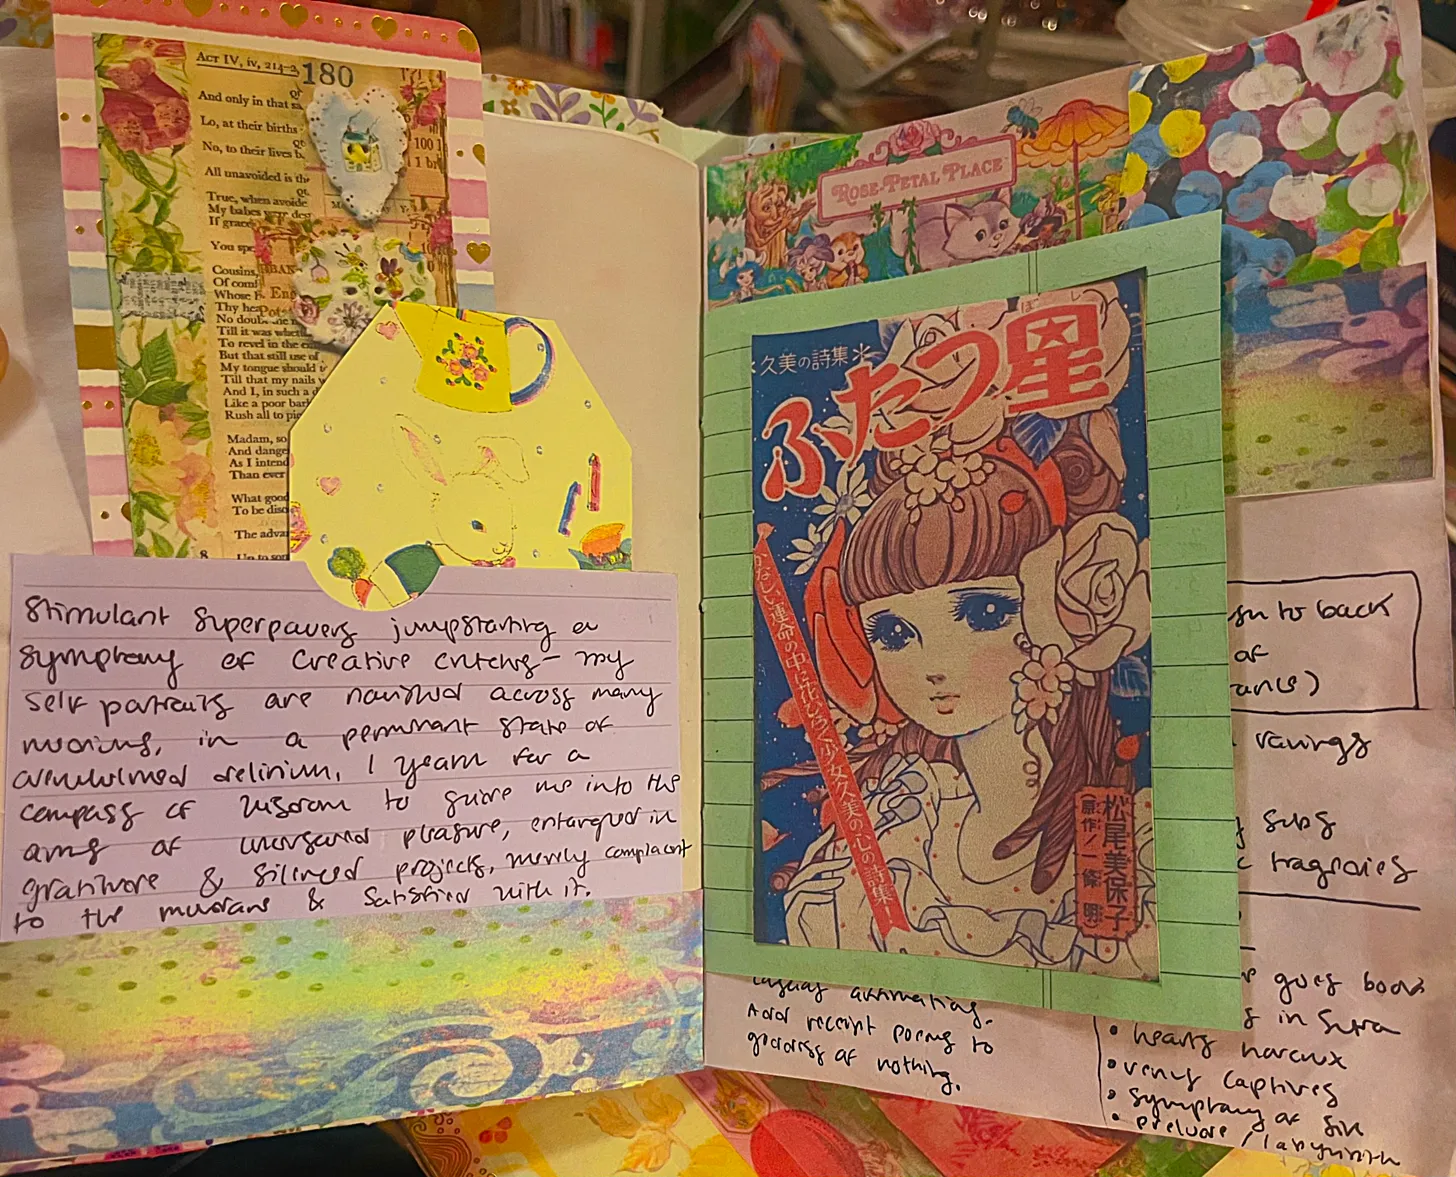 ACT IV, iv, 214-2
180
And only in that
Lo, at their births
No, to their lives b
All unavoided is th
True, when avoide
My babes were dest
If grace
You spe
Cousins,
Of com
Whose
Thy hea
No doub
Till it was whet
To revel in the
But that still use of
My tongue should
Till that my nails
And I, in such a
Like a poor bar
Rush all to pie
Madam, so
And dange
As I intend
Than ever
What good
To be disc
The advan
8
Up to som
100
1 br
stimulant superpowers jumpstarting a
symphony of creative entering - my
self portraits are nourished across many
mediums, in a permanant state of
overwhelmed delirium, I yearn for a
compass of wisdom to guide me into the
arms of unversed pleasure, entangled in
gratitude & silenced projects, merely complacent
to the mundane & satisfied with it.
ROSE-PETAL PLACE
*久美の詩集*
ふたつ星
ぼし
かなしい運命の中に花ひらく少女久美の心の詩集!
松尾美保子
(原作/一條明)
casual automating.
Add receipt poems to
goddess of nothing.
to back
of
ravings
subs
tragedies
goes book
in Sutra
• hearts
• venus captives
• symphony of sin
• prelude / labyrinth